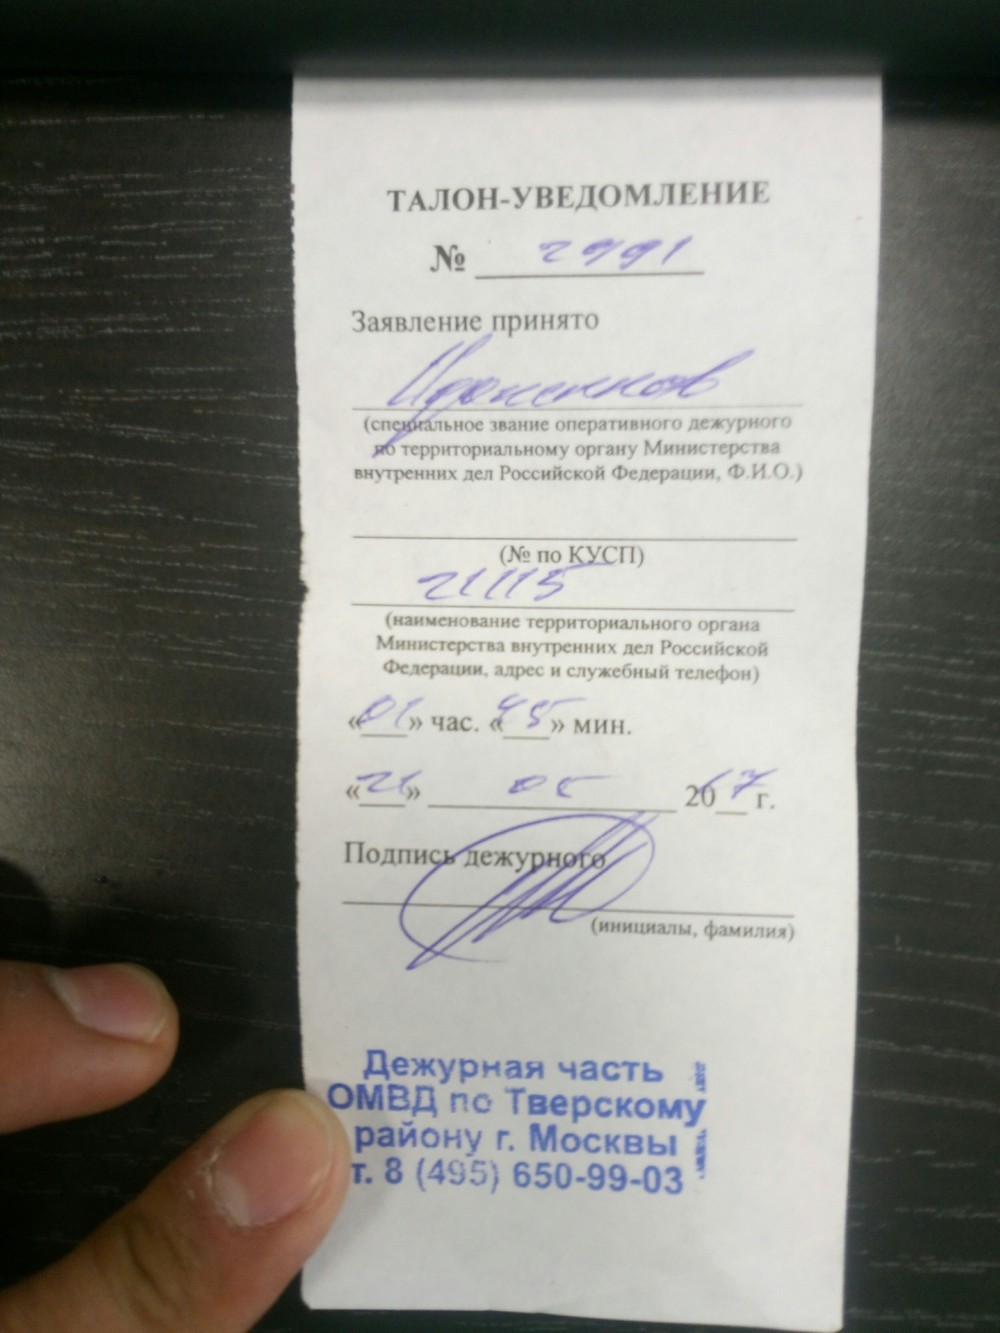 ТАЛОН-УВЕДОМЛЕНИЕ
№
Заявление принято
(специальное звание оперативного дежурного
по территориальному органу Министерства
внутренних дел Российской Федерации, Ф.И.О.)
(№ по КУСП)
21115
(наименование территориального органа
Министерства внутренних дел Российской
Федерации, адрес и служебный телефон)
«01» час. «45» мин.
«21» 05 2017 г.
Подпись дежурного
(инициалы, фамилия)
Дежурная часть
ОМВД по Тверскому
району г. Москвы
т. 8 (495) 650-99-03